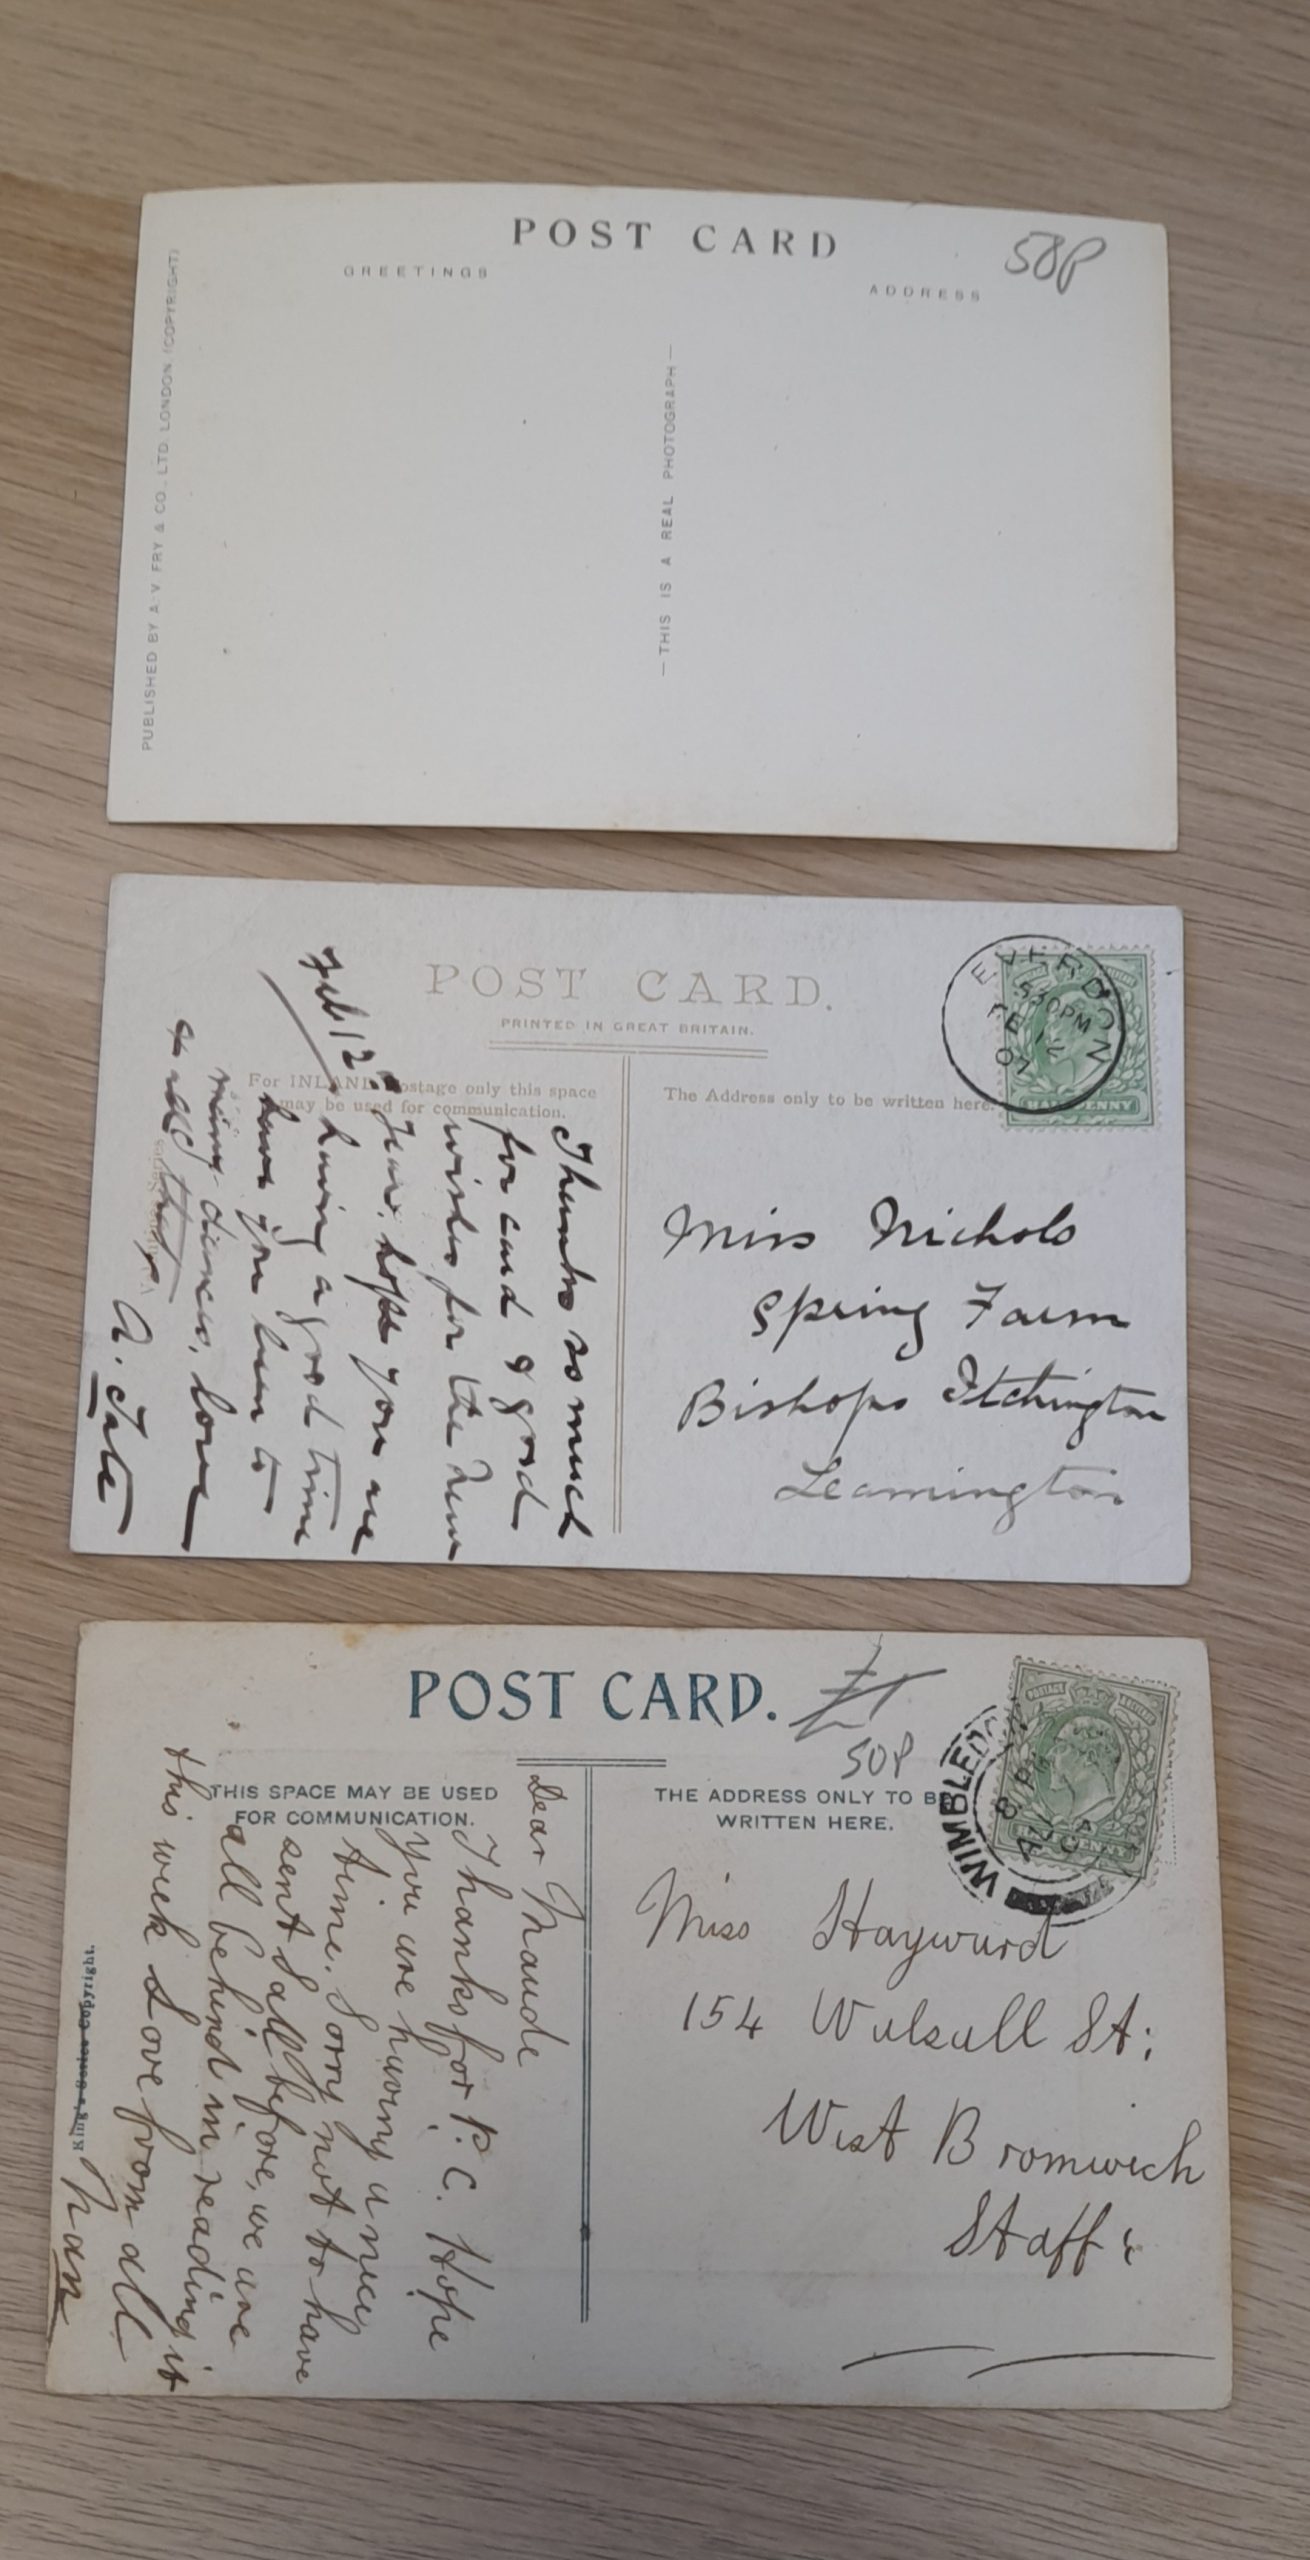 POST CARD
50P
GREETINGS
ADDRESS
PUBLISHED BY A. V. FRY & CO., LTD. LONDON (COPYRIGHT)
— THIS IS A REAL PHOTOGRAPH —
POST CARD.
PRINTED IN GREAT BRITAIN.
For INLAND Postage only this space
may be used for communication.
The Address only to be written here.
EVERDON
530PM
FE 12
07
HALFPENNY
Feb 12
Thanks so much
for card & good
wishes for the New
Year. hope you are
having a good time
have you been to
many dances, love
& all
A. Tate
Miss Nichols
Spring Farm
Bishops Itchington
Leamington
POST CARD.
£1
50P
THIS SPACE MAY BE USED
FOR COMMUNICATION.
THE ADDRESS ONLY TO BE
WRITTEN HERE.
WIMBLEDO
POSTAGE
Dear Maude
Thanks for P.C. Hope
you are having a nice
time. Sorry not to have
sent S all before, we are
all behind in reading it
this week Love from all
Nan
King's Series Copyright.
Miss Hayward
154 Walsall St:
West Bromwich
Staffs